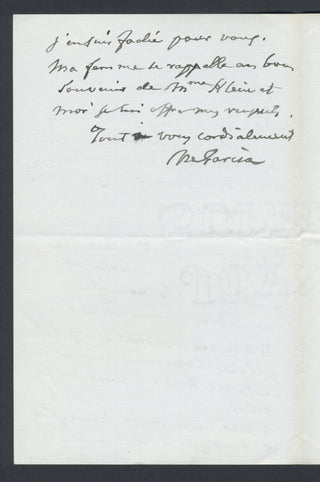 j'en suis fâché pour vous.
Ma femme se rappelle au bon
souvenir de Mme Klein et
moi je lui offre mes respects.
Tout à vous cordialement